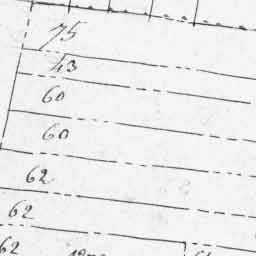 75
43
60
60
62
62
62